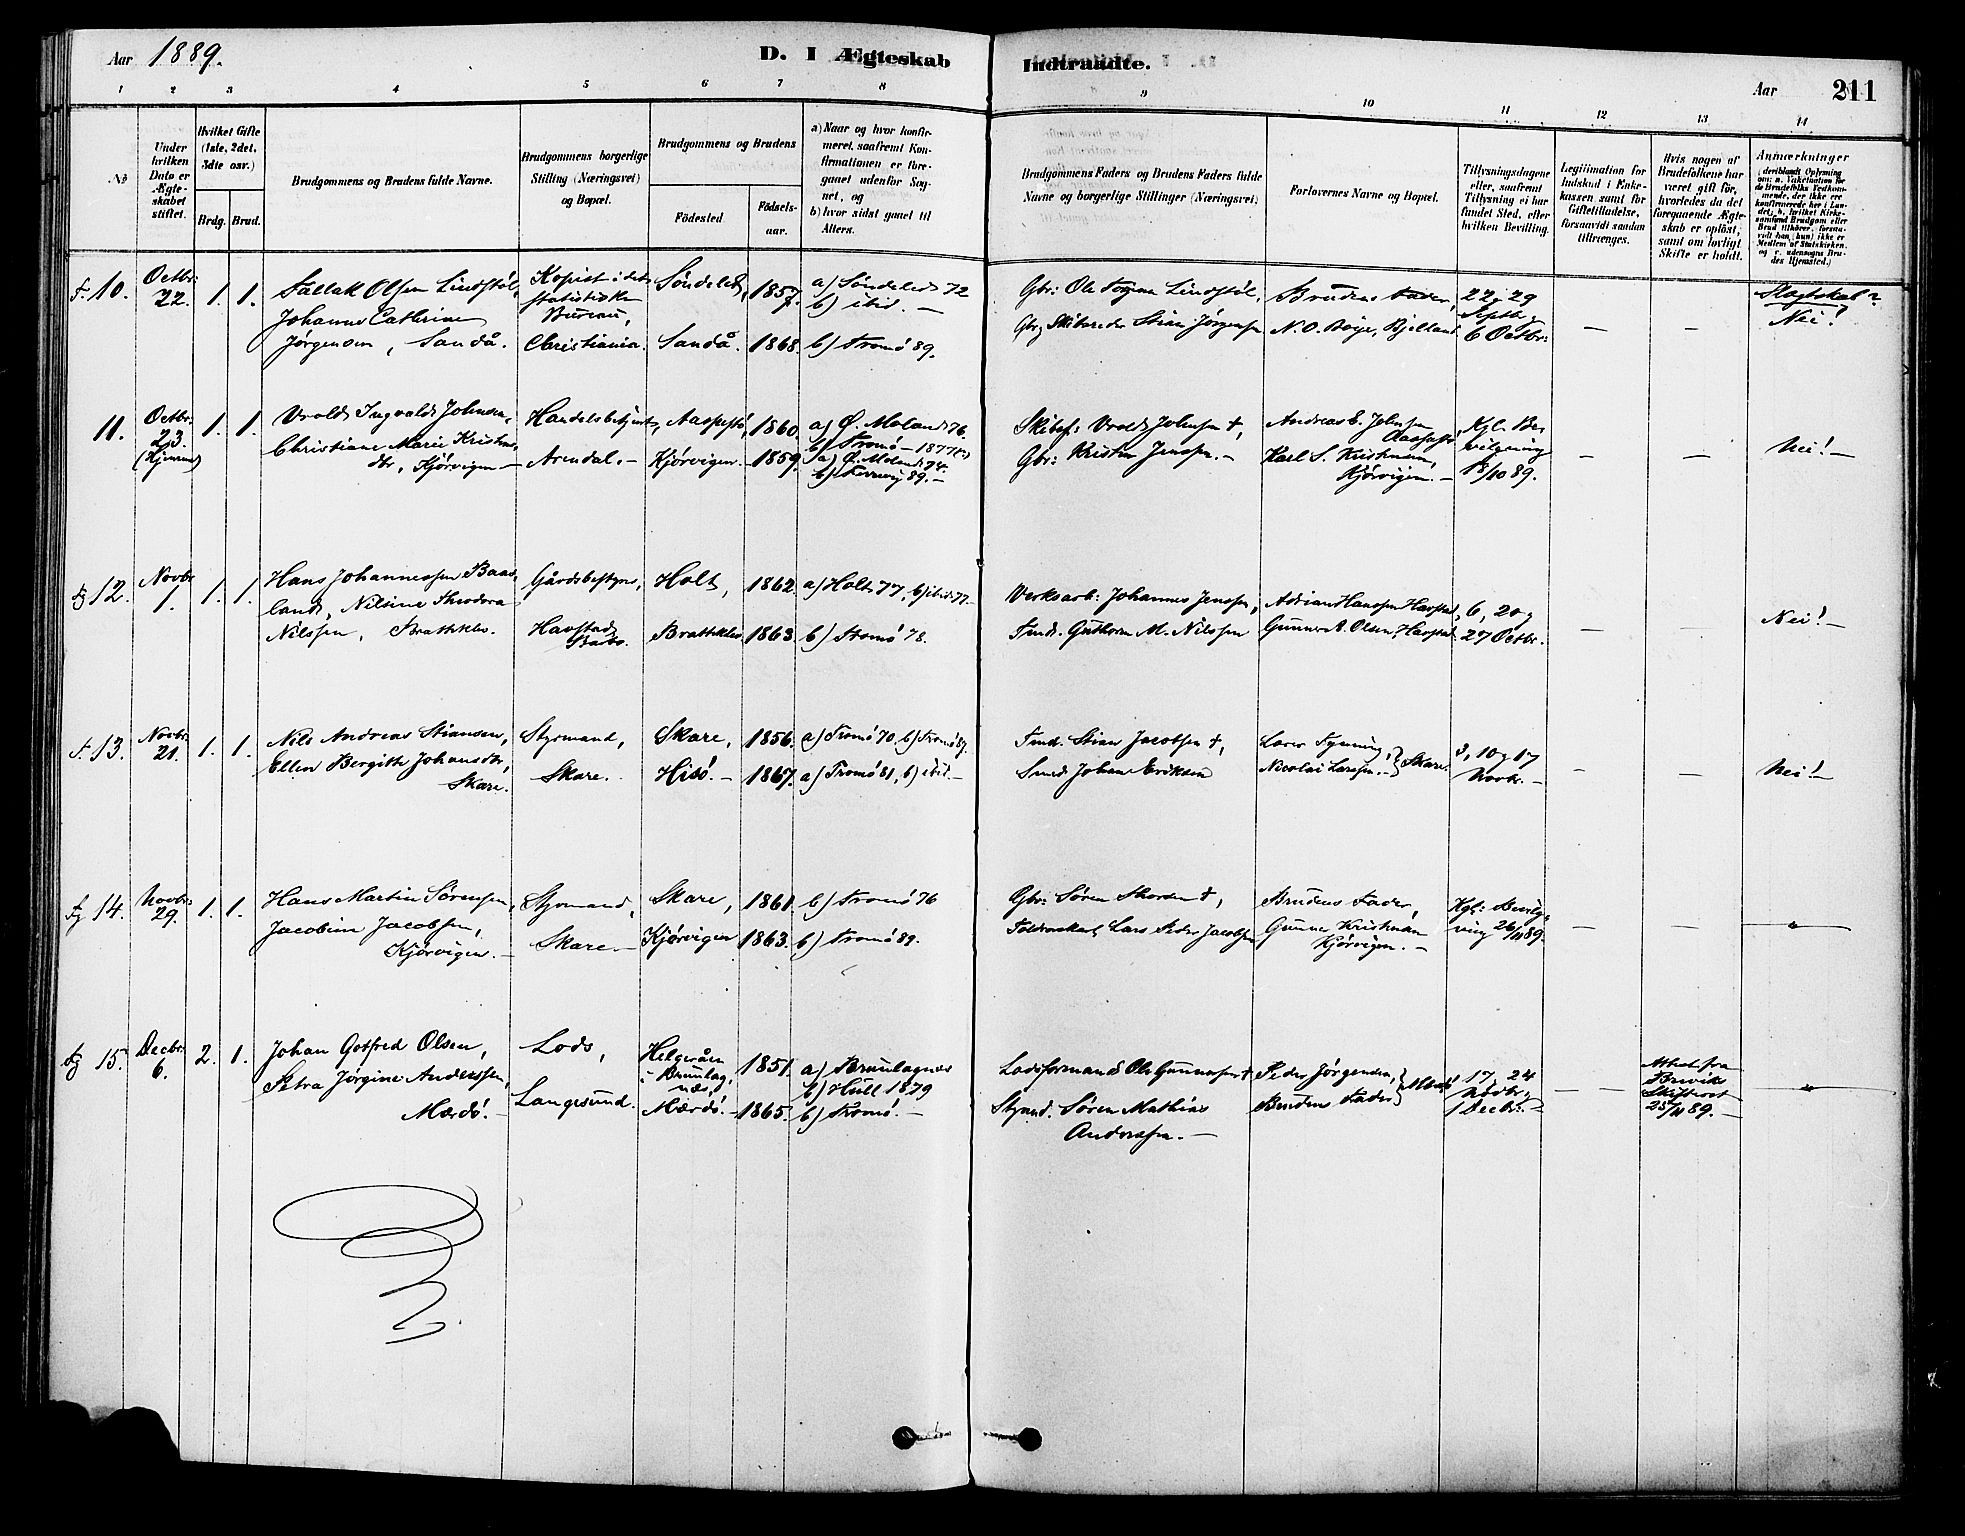 Aar 1889.
D. I Ægteskab Indtraadte.
Aar 211
1 2 3 4 5 6 7 8 9 10 11 12 13 14
No
Under hvilken Dato er Ægteskabet stiftet.
Hvilket Gifte (1ste, 2det, 3die osv.)
Brdg. Brud.
Brudgommens og Brudens fulde Navne.
Brudgommens borgerlige Stilling (Næringsvei) og Bopæl.
Brudgommens og Brudens
Fødested. Fødsels-aar.
a) Naar og hvor konfirmeret, saafremt Konfirmationen er foregaaet udenfor Sognet, og
b) hvor sidst gaaet til Alters.
Brudgommens Faders og Brudens Faders fulde Navne og borgerlige Stillinger (Næringsvei)
Forlovernes Navne og Bopæl.
Tillysningsdagene eller, saafremt Tillysning ei har fundet Sted, efter hvilken Bevilling.
Legitimation for Indskud i Enkekassen samt for Giftetilladelse, forsaavidt saadan tiltrænges.
Hvis nogen af Brudefolkene har været gift før, hvorledes da det foregaaende Ægteskab er opløst, samt om lovligt Skifte er holdt.
Anmærkninger
10. Octbr. 22. 1. 1. Tallak Olsen Lindstøl, Kopist i det Søndeled, 1857. a) Søndeled 72
statistiske Bureau, b) ibid. —
Johanne Cathrine
Jørgensen, Sandå. Christiania. Sandå. 1868. b) Tromø 89.
Gbr: Ole Lindstøl, Brudens Fader, 22 29 Septb. Slagtskab?
Gbr Skibsreder Stian Jørgensen N. O. Bøje, Bjelland 6 Octbr: — — Nei!
11. Octbr. 23. 1. 1. Vrold Ingvald Johnsen, Handelsbetjent, 1860. a) Ø. Moland 76.
b) Tromø — 1877
Christiane Marie Kristens
dtr, Kjørvigen — Arendal. — Kjørvigen. — 1859. a) Ø. Moland 74.
b) 89. —
Skibsf. Vrold Johnsen †, Andreas E. Johnsen Kgl. Be
Gbr: Kristen Jensen. — Karl S. Kristensen, vilgning
Kjørvigen. — 18/10 89. — — Nei! —
12. Novbr 1. 1. 1. Hans Johannessen Baas Gårdsbestyrer, Holt, 1862. a) Holt 77, b) ibid: 77 —
land, Nilsine Theodora
Nilssen, Bratteklev. Havstad Barbo. Bratteklev 1863. b) Tromø 78.
Verksarb: Johannes Jensen, Adrian Hanssen Havstad, 6, 20 og
Tmd. Guthorm M. Nilssen Gunner A. Olsen, Havstad. 27 Octbr. — — Nei! —
13. Novbr. 21. 1. 1. Nils Andreas Stiansen, Styrmand, Skare, 1856. a) Tromø 70, b) Tromø 89.
Ellen Bergitte Johansdtr, Skare. Hisø. — 1867. a) Tromø 81, b) ibid. —
Skare.
Tmd. Stian Jacobsen †, 3, 10 og 17
Smed Johan Eriksen Nicolai Larssen. — } Skare. Novbr. — — — Nei! —
14. Novbr. 29. 1. 1. Hans Martin Sørensen, Styrmand, Skare, 1861. b) Tromø 76
Jacobine Jacobsen,
Kjørvigen. — Skare. — Kjørvigen 1863. b) Tromø 89.
Gbr: Søren †, Brudens Fader, Kgl: Bevilg
Toldroerkarl Lars Peder Jacobsen Gunner Kristensen ning 26/11 89.
Kjørvigen. — — — "
15. Decbr. 6. 2. 1. Johan Gotfred Olsen, Lods, Helgeråen 1851. a) Brunlagnæs
i Brunlag, næs, b) Hull 1879
Petra Jørgine Anderssen,
Mærdø. — Langesund. Mærdø. — 1865. b) Tromø. —
Lodsformand Ole Gunnersen † Peder Jørgensen, 17, 24 Attest fra
Styrmd. Søren Mathias Brudens Fader } Novbr, Breviks
Anderssen. — 1 Decbr. — — Skifteret
25/11 89. — "